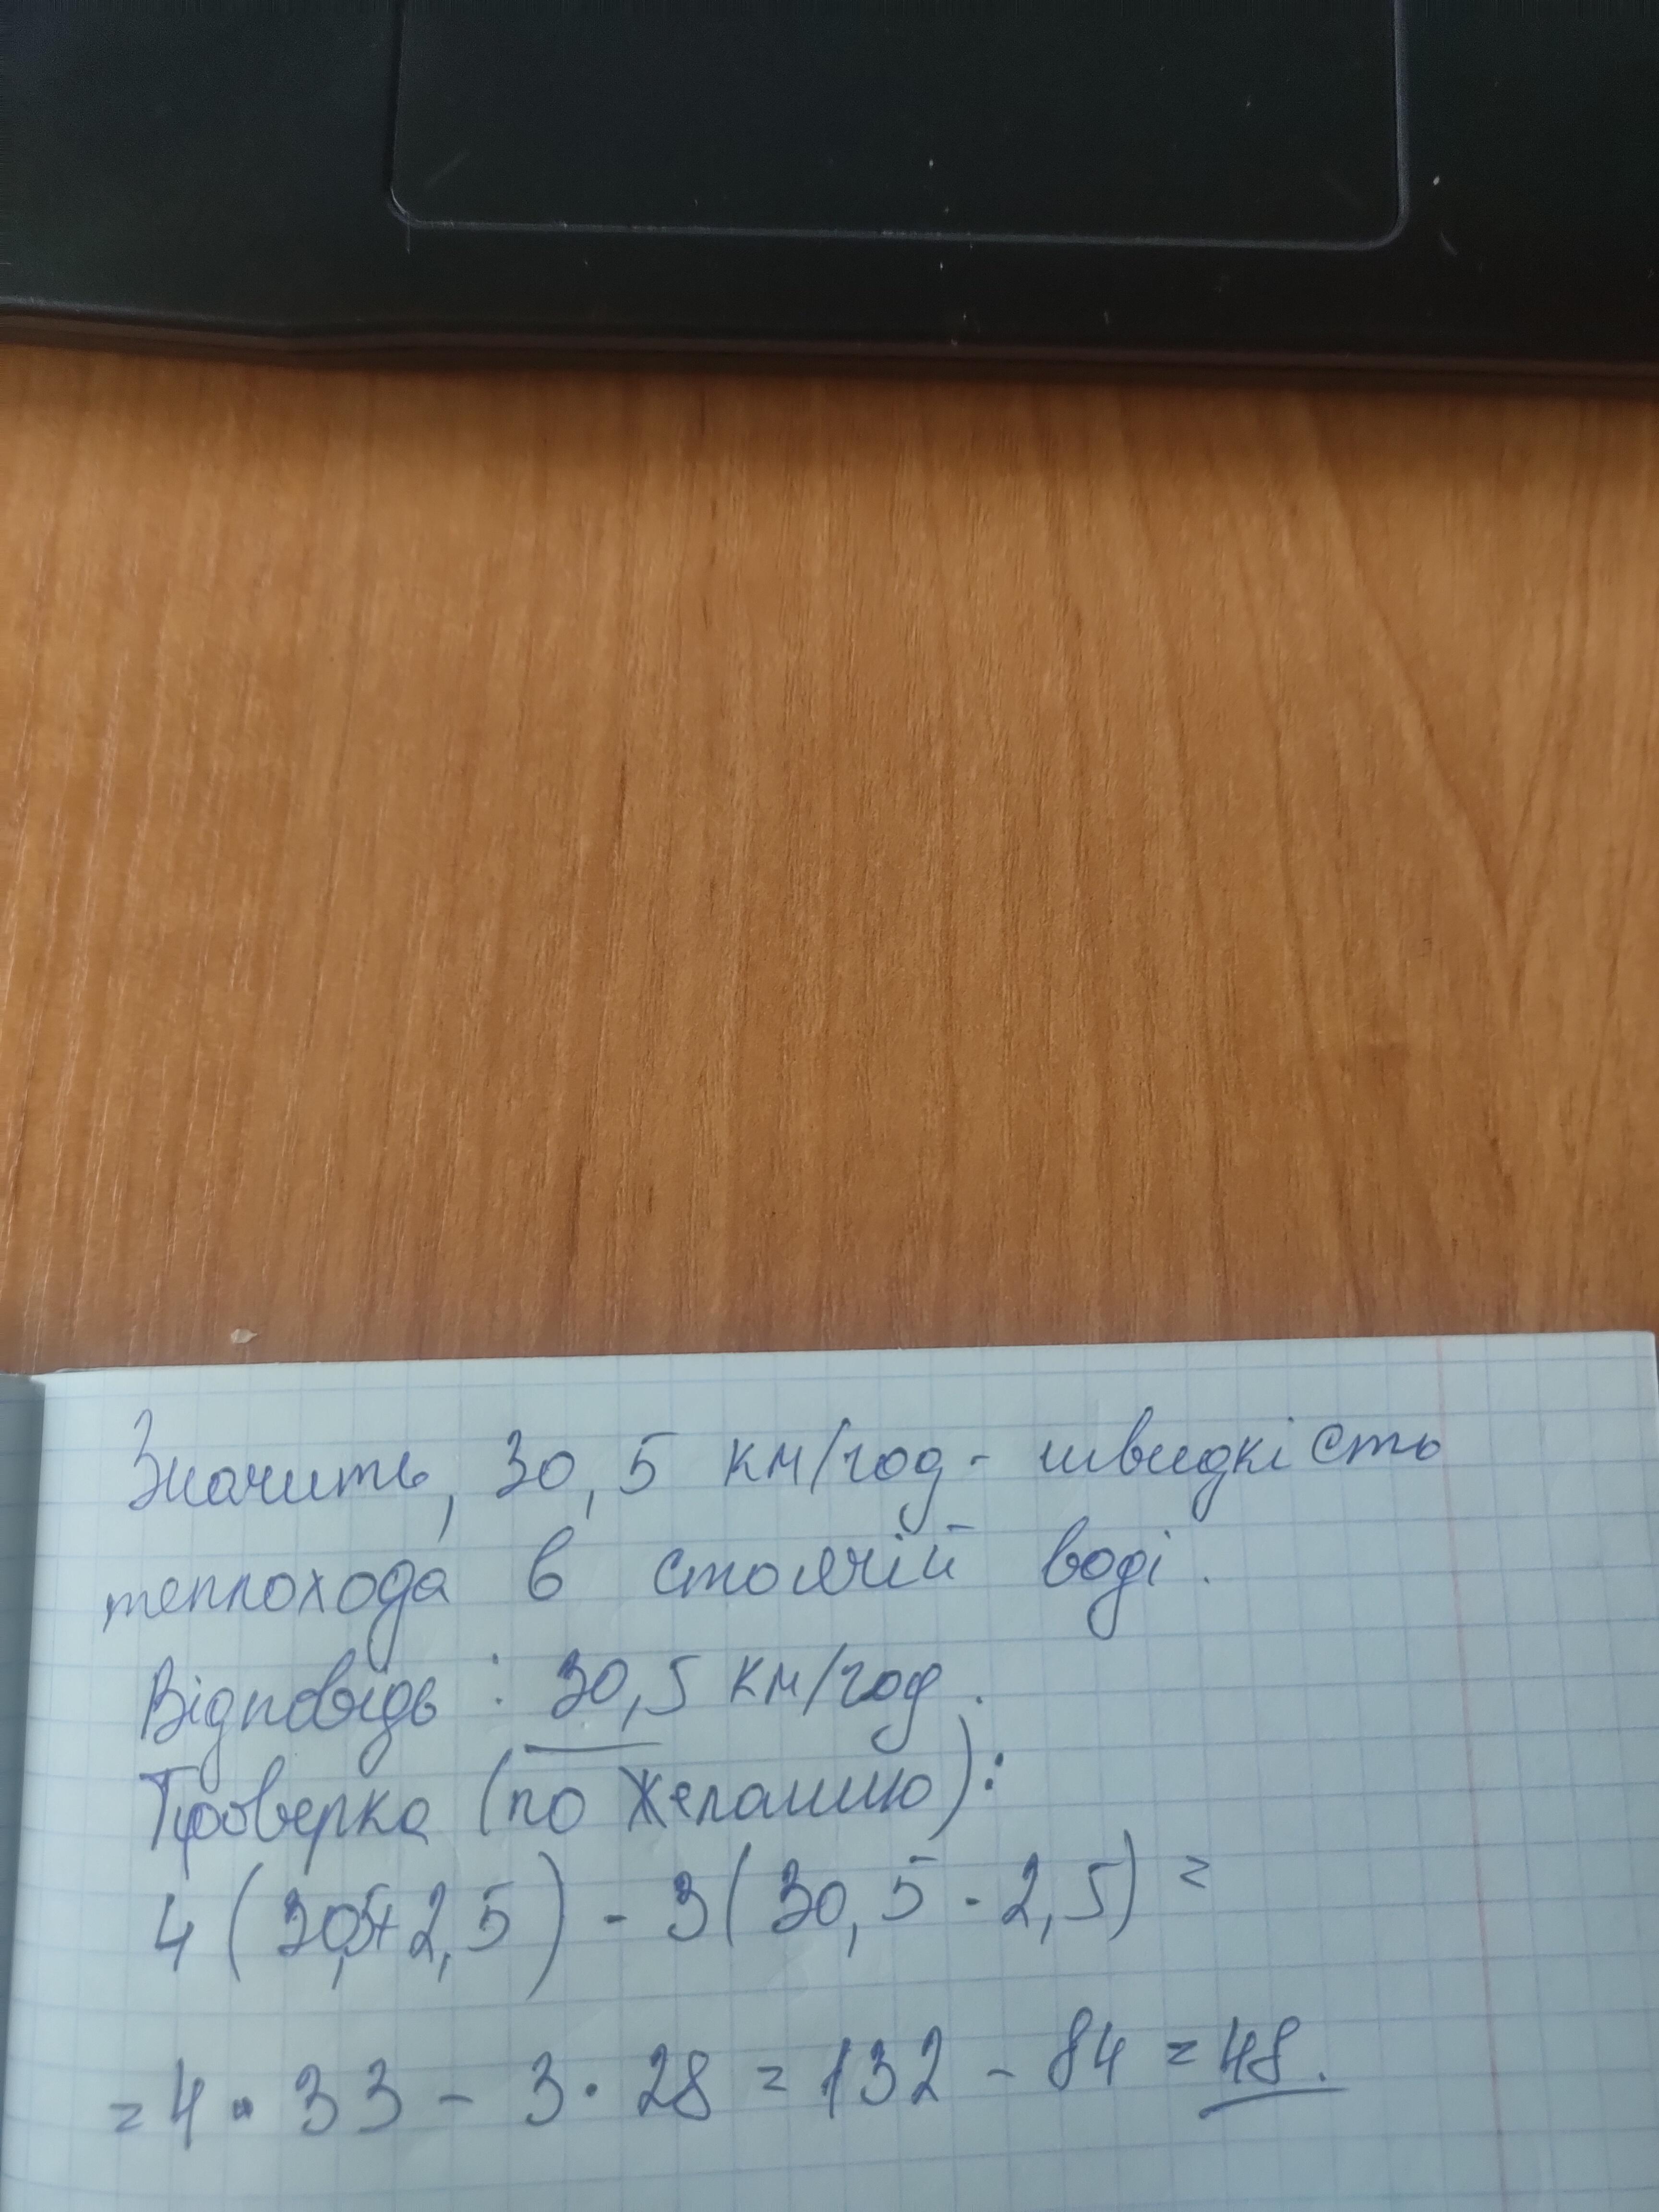 Значить, 30,5 км/год - швидкість
теплохода в стоячій воді.
Відповідь: 30,5 км/год.
Проверка (по желанию):
4(30,5+2,5) - 3(30,5-2,5) =
= 4 · 33 - 3 · 28 = 132 - 84 = 48.